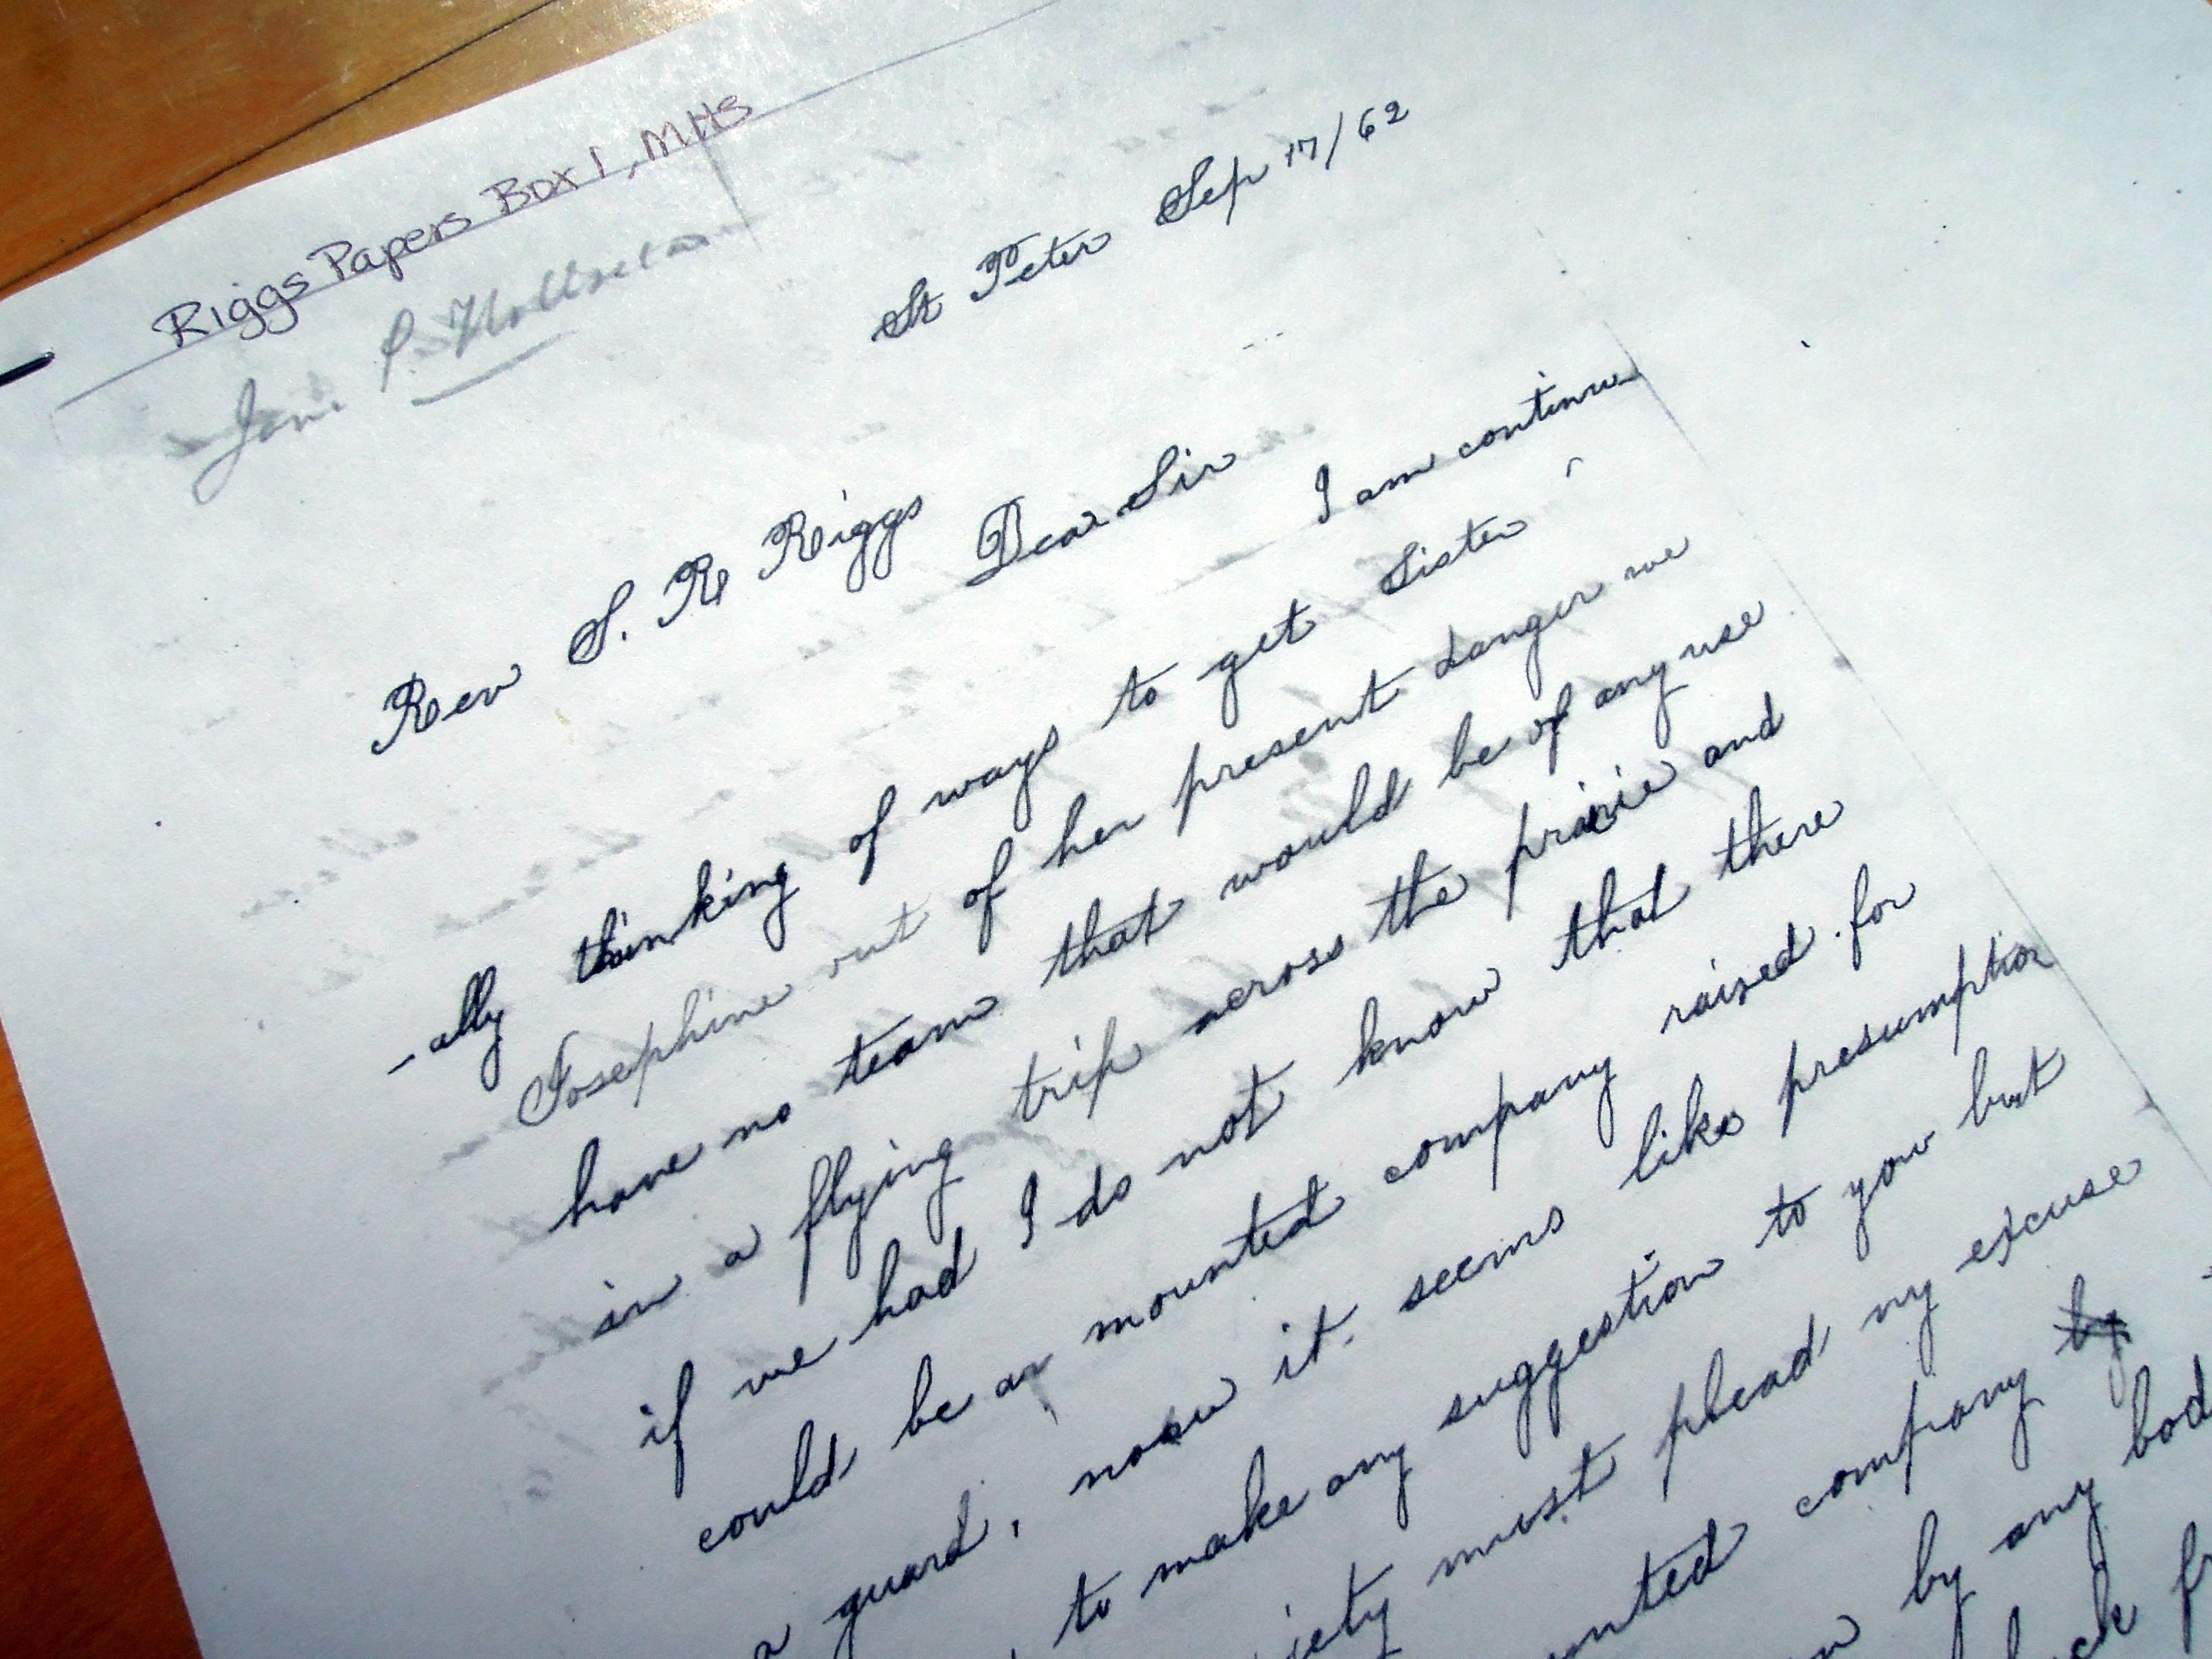 Riggs Papers Box 1, MHS
Jan. P.
St Peter Sep 17/62
Rev S. R Riggs
Dear Sir
I am continu
-ally thinking of ways to get Sister
Josephine out of her present danger we
have no team that would be of any use
in a flying trip across the prairie and
if we had I do not know that there
could be a mounted company raised for
a guard, now it seems like presumption
to make any suggestion to you but
must plead my excuse
company by
by any bod